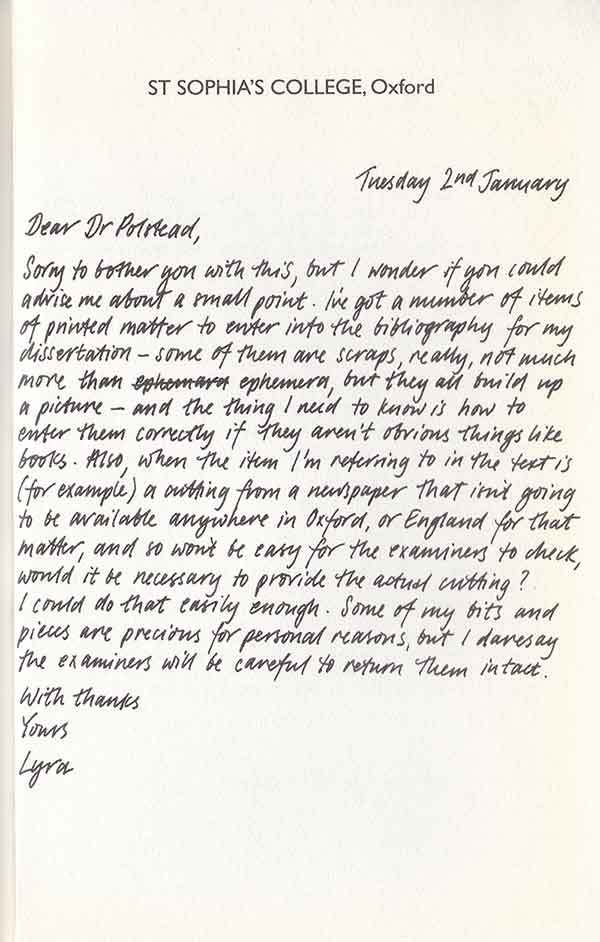 ST SOPHIA'S COLLEGE, Oxford
Tuesday 2nd January
Dear Dr Polstead,
Sorry to bother you with this, but I wonder if you could
advise me about a small point. I've got a number of items
of printed matter to enter into the bibliography for my
dissertation – some of them are scraps, really, not much
more than ephemara ephemera, but they all build up
a picture – and the thing I need to know is how to
enter them correctly if they aren't obvious things like
books. Also, when the item I'm referring to in the text is
(for example) a cutting from a newspaper that isn't going
to be available anywhere in Oxford, or England for that
matter, and so won't be easy for the examiners to check,
would it be necessary to provide the actual cutting?
I could do that easily enough. Some of my bits and
pieces are precious for personal reasons, but I daresay
the examiners will be careful to return them intact.
With thanks
Yours
Lyra